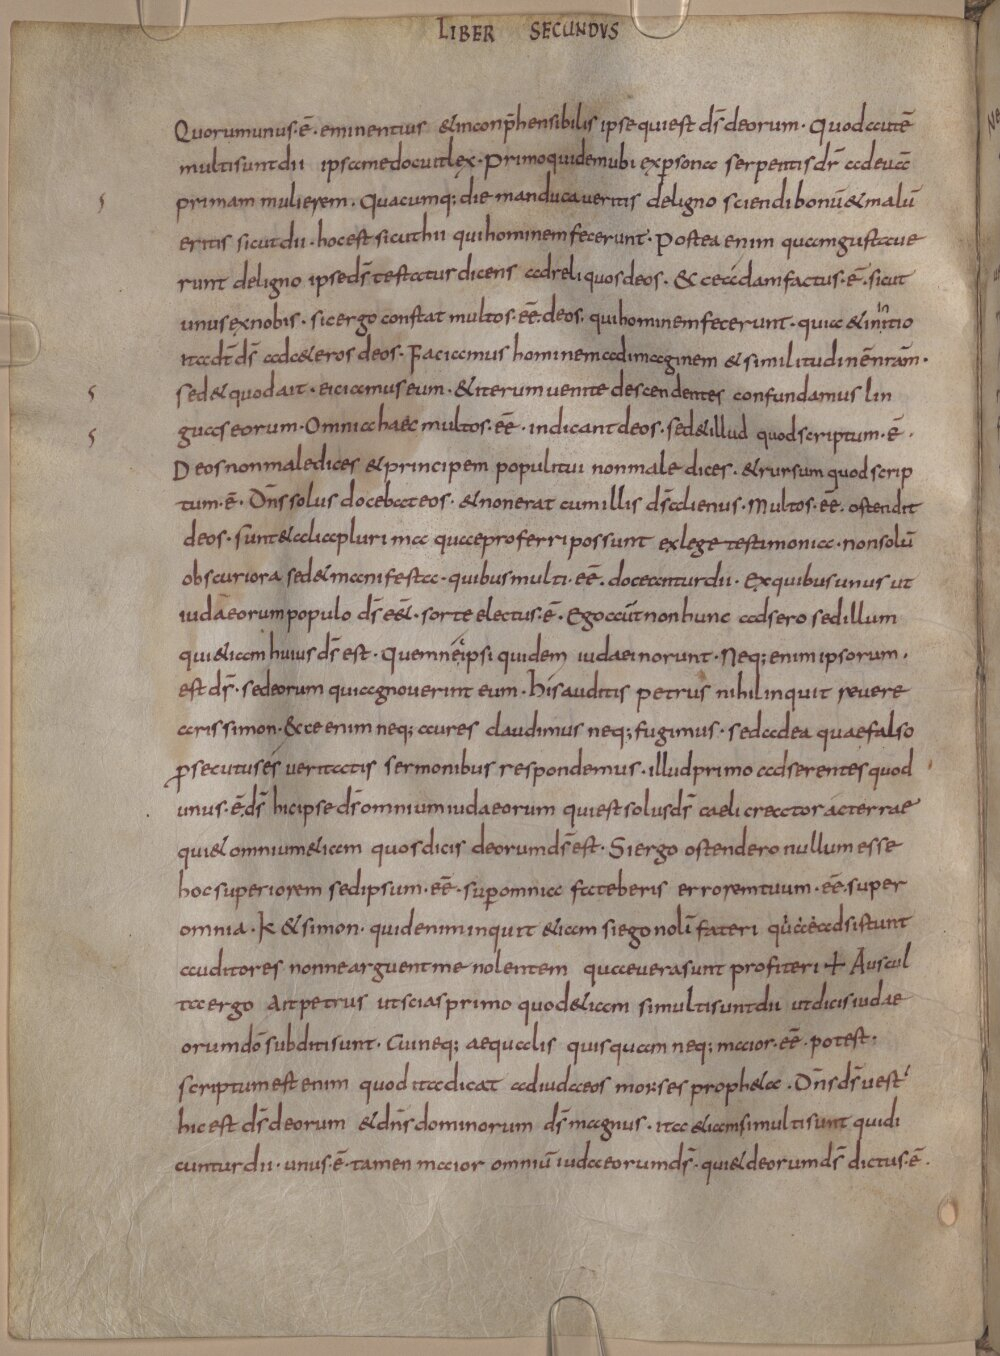 LIBER SECUNDVS
Quorum unus·ē· eminentius & inconp̄hensibilis ipse qui est d̄s deorum· Quod autē
multi sunt dii ipsa me docuit lex· Primo quidem ubi ex ꝑsona serpentis dr̄ ad euā
primam mulierem. Quacumq; die manducaveritis de ligno sciendi bonū & malū
eritis sicut dii· hoc est sicut hii qui hominem fecerunt· Postea enim quam gustave
runt de ligno ipse d̄s testatur dicens ad reliquos deos. & ce adam factus·ē· sicut
unus ex nobis· sic ergo constat multos·ēē· deos. qui hominem fecerunt· quia & initio
ita dt̄ d̄s ad c&eros deos· Faciamus hominem ad imaginem & similitudinē nrām·
sed & quod ait· eiciamus eum· & iterum venite descendentes confundamus lin
guas eorum· Omnia haec multos·ēē· indicant deos· sed & illud quod scriptum·ē·
Deos non maledices & principem populi tui non maledices. & rursum quod scrip
tum·ē· Dn̄s solus docebat eos· & non erat cum illis d̄s alienus· Multos·ēē· ostendit
deos· sunt & alia plurima quae proferri possunt ex lege testimonia· non solū
obscuriora sed & manifesta· quibus multi·ēē· doceantur dii· Ex quibus unus ut
iudaeorum populo d̄s e&́· sorte electus·ē· Ego aūt non hunc adsero sed illum
qui &iam huius d̄s est· Quem nec ipsi quidem iudaei norunt· Neq; enim ipsorum·
est d̄s· sed eorum qui agnoverint eum· his auditis petrus nihil inquit revere
aris simon· & ce enim neq; aures claudimus neq; fugimus· sed ad ea quae falso
ꝑsecutus es veritatis sermonibus respondemus· illud primo adserentes quod
unus·ē· d̄s hic ipse d̄s omnium iudaeorum qui est solus d̄s caeli creator ac terrae
qui & omnium &iam quos dicis deorum d̄s est· Si ergo ostendero nullum esse
hoc superiorem sed ipsum·ēē· suꝑ omnia fateberis errorem tuum·ēē· super
omnia· K & simon· quid enim inquit &iam si ego nolī fateri qui adsistunt
auditores nonne arguent me nolentem quae vera sunt profiteri + Auscul
ta ergo ait petrus ut scias primo quod &iam si multi sunt dii ut dicis iudae
orum dō subditi sunt· Cui neq; aequalis quisquam neq; maior·ēē· potest·
scriptum est enim quod ita dicat ad iudaeos moyses proph&a· Dn̄s d̄s vest
hic est d̄s deorum & dn̄s dominorum d̄s magnus· ita &iam si multi sunt qui di
cuntur dii· unus·ē· tamen maior omniū iudaeorum d̄s· qui & deorum d̄s dictus·ē·